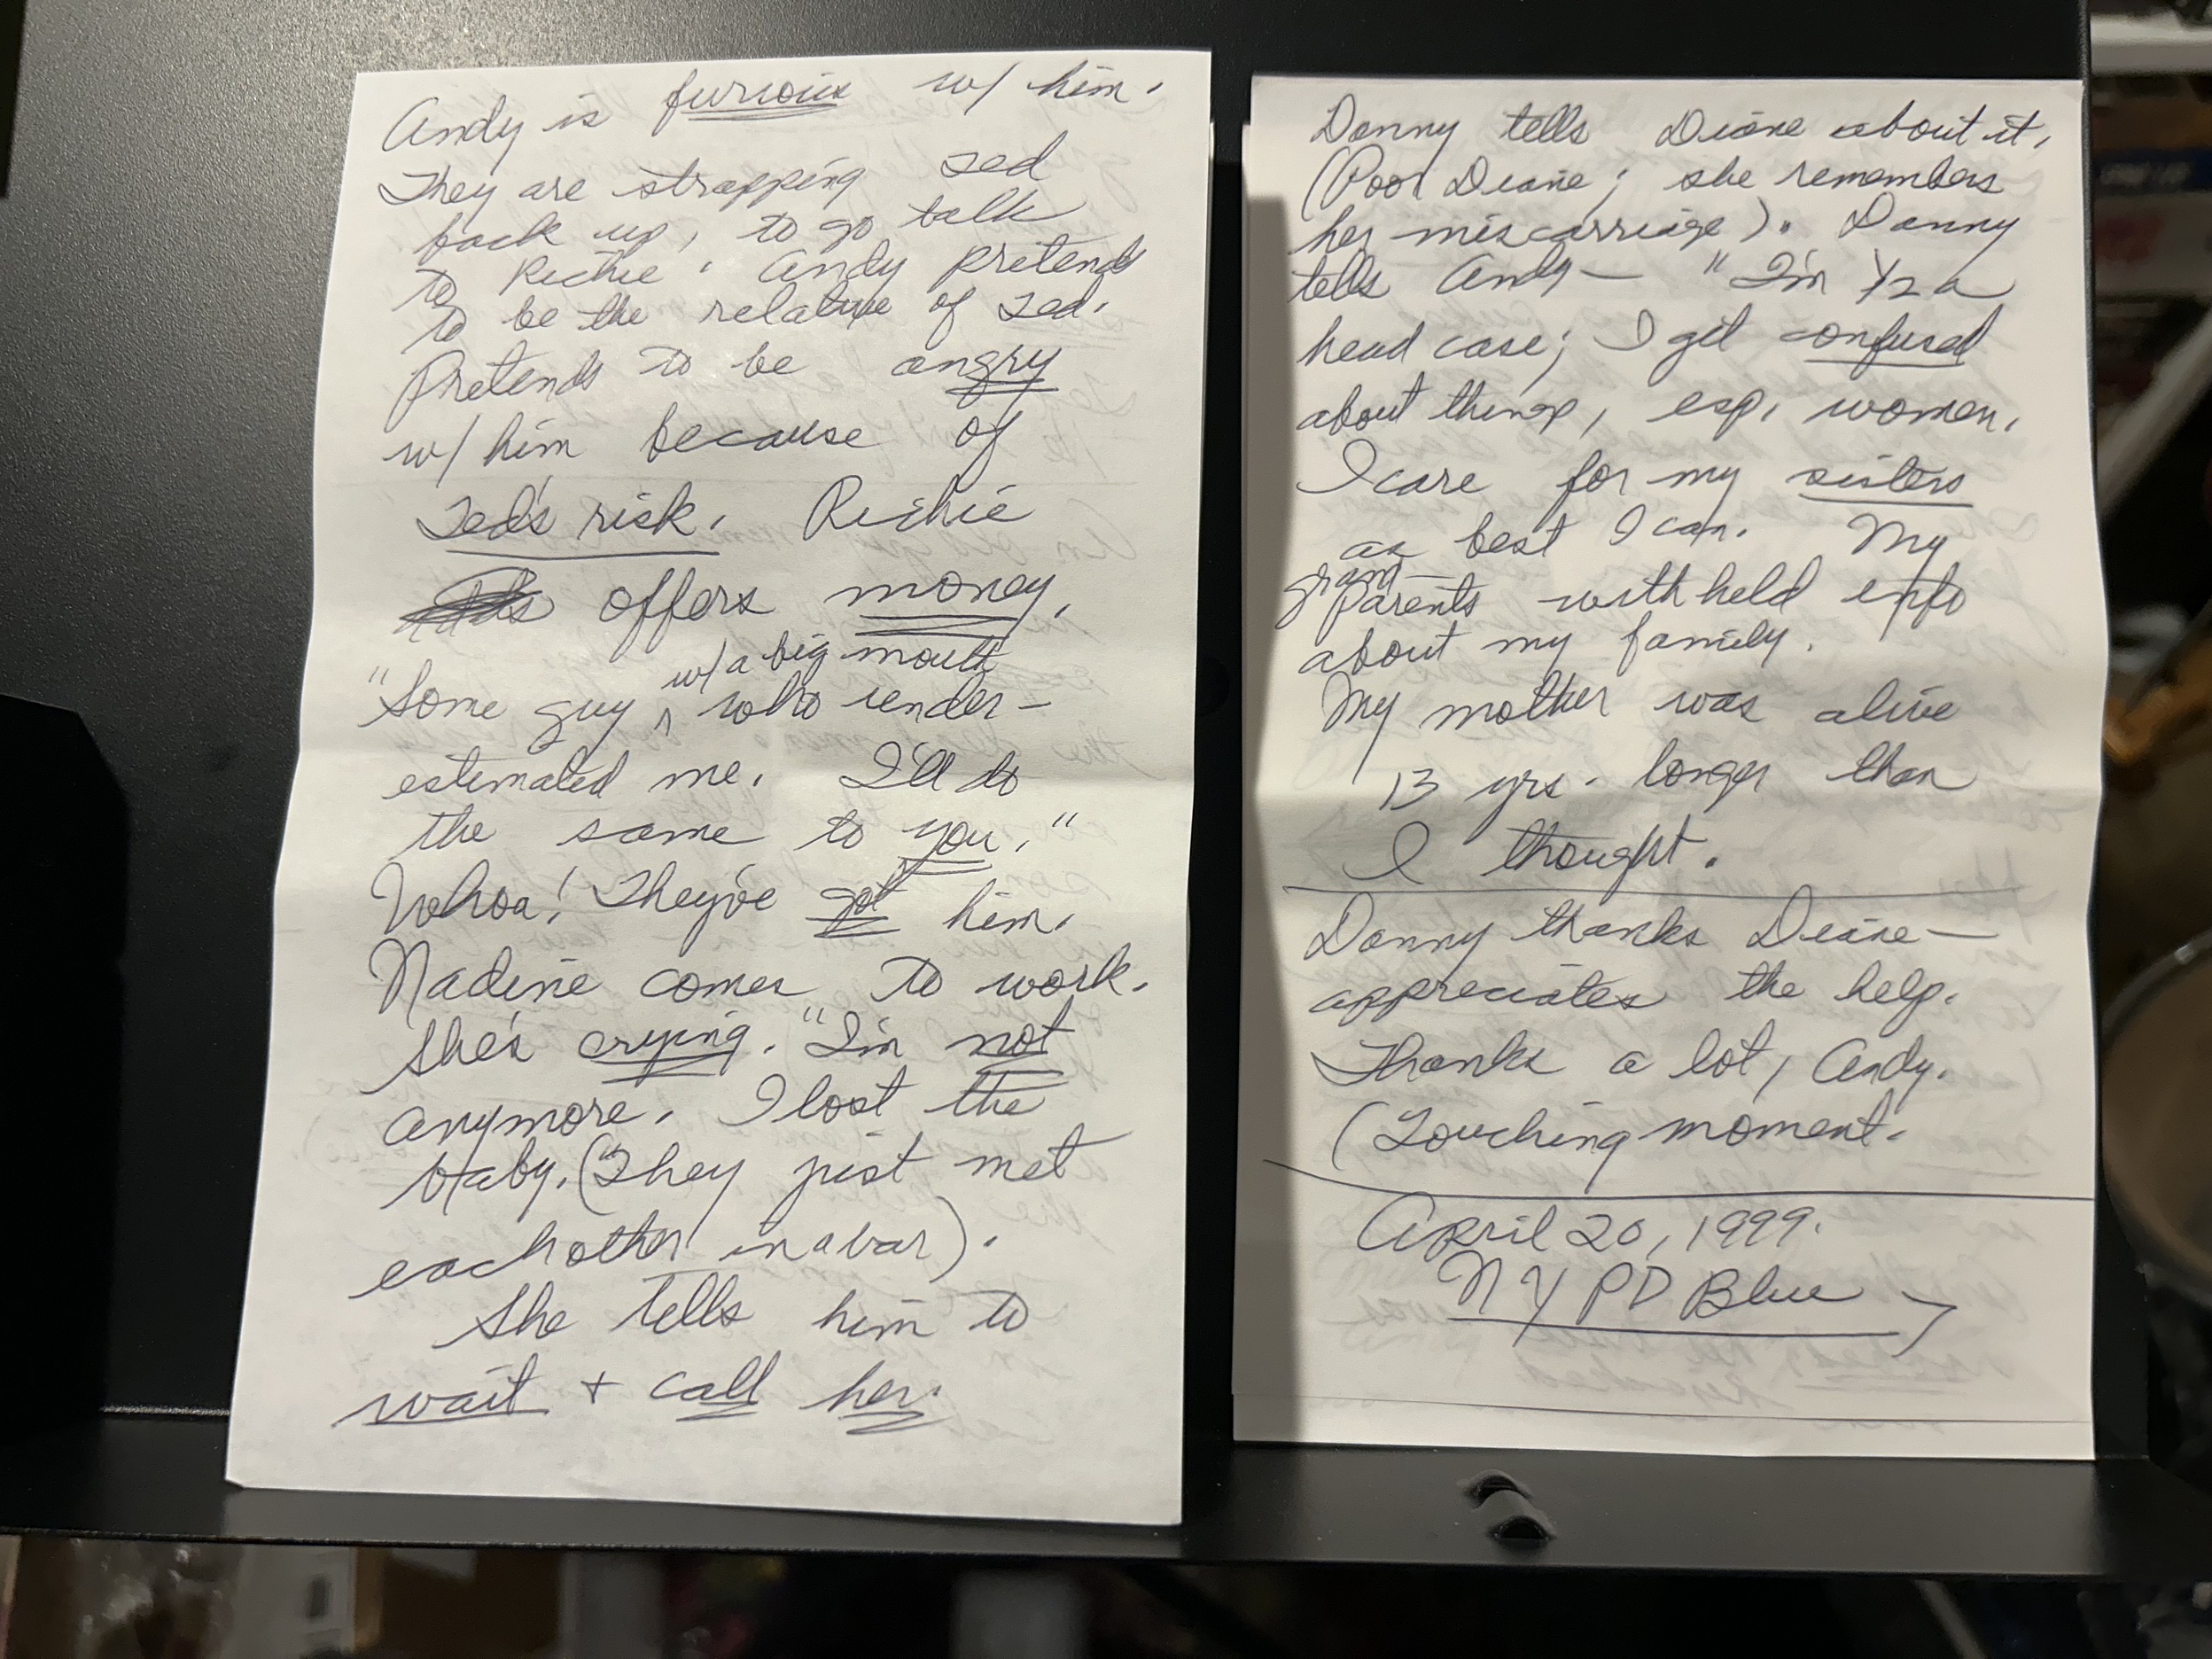 Andy is furious w/ him.
They are strapping Ted
back up, to go talk
to Richie. Andy pretends
to be the relative of Ted.
Pretends to be angry
w/ him because of
Ted's risk. Richie
offers money.
"Some guy w/ a big mouth who under-
estimated me. I'll do
the same to you."
Whoa! They've got him.
Nadine comes to work.
She's crying. "I'm not
anymore. I lost the
baby. (They just met
each other in a bar).
She tells him to
wait + call her.
Danny tells Diane about it.
(Poor Diane; she remembers
her miscarriage). Danny
tells Andy— "I'm ½ a
head case; I get confused
about things, esp. women.
I care for my sisters
as best I can. My
grand-parents withheld info
about my family.
My mother was alive
13 yrs. longer than
I thought.
Danny thanks Diane—
appreciates the help.
Thanks a lot, Andy.
(Touching moment.
April 20, 1999.
NYPD Blue →